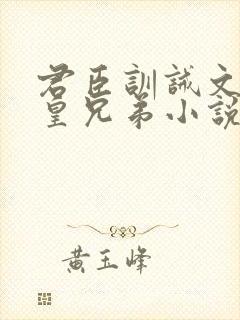 君臣訓誡文
皇兄弟小說
黃玉峰